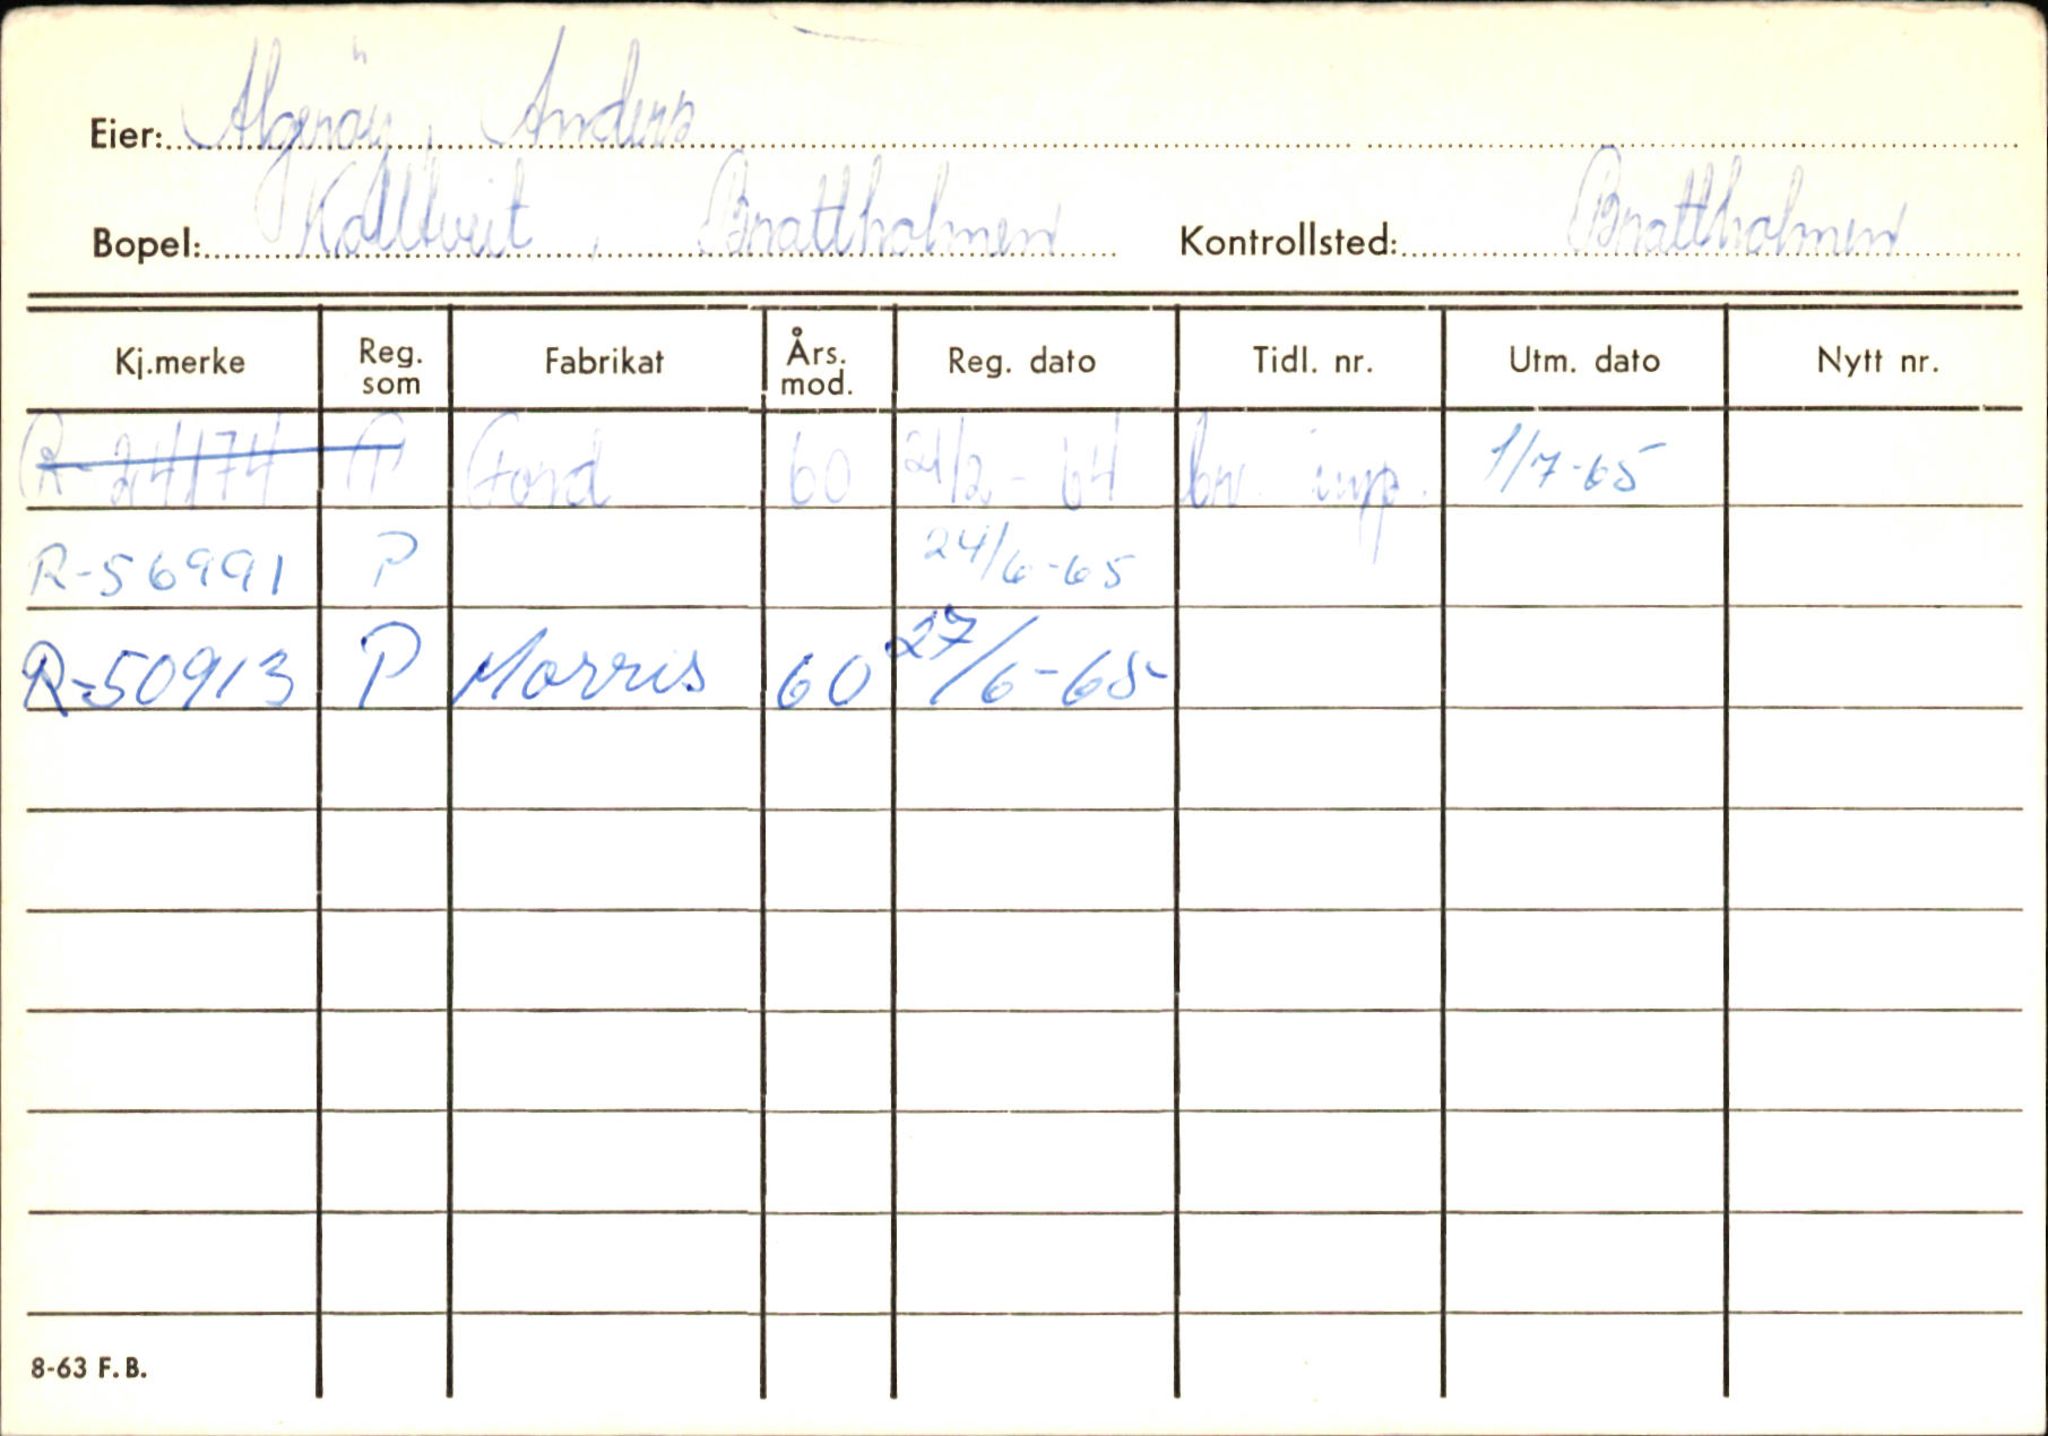 Eier: Algeröy, Anders
Bopel: Kolltveit, Brattholmen Kontrollsted: Brattholmen
Kj.merke Reg. som Fabrikat Års. mod. Reg. dato Tidl. nr. Utm. dato Nytt nr.
R-24174 P Ford 60 21/2-64 br. imp. 1/7-65
R-56991 P 24/6-65
R-50913 P Morris 60 27/6-65
8-63 F.B.